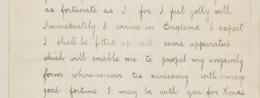 as fortunate as I, for I feel jolly well.
Immediately I arrive in England I expect
I shall be fitted up with some apparatus
which will enable me to propel my ungainly
form where-so-ever 'tis necessary. with average
good fortune I may be with you for Xmas